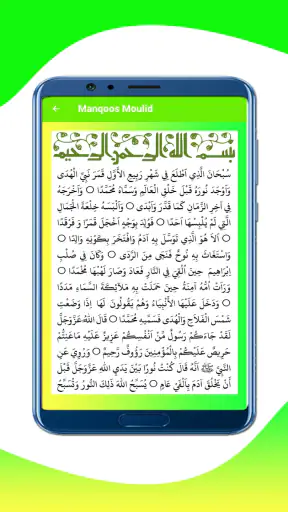 Manqoos Moulid
بسم الله الرحمن الرحيم
سُبْحَانَ الَّذِي أَطْلَعَ فِي شَهْرِ رَبِيعِ الْأَوَّلِ قَمَرَ نَبِيِّ الْهُدَى
وَأَوْجَدَ نُورَهُ قَبْلَ خَلْقِ الْعَالَمِ وَسَمَّاهُ مُحَمَّدًا ○ وَأَخْرَجَهُ
فِي آخِرِ الزَّمَانِ كَمَا قَدَّرَ وَأَبْدَى ○ وَأَلْبَسَهُ خِلْعَةَ الْجَمَالِ
الَّتِي لَمْ يُلْبِسْهَا أَحَدًا ○ فَوُلِدَ بِوَجْهٍ أَخْجَلَ قَمَرًا وَ فَرْقَدًا
○ أَلَا هُوَ الَّذِي تَوَسَّلَ بِهِ آدَمُ وَافْتَخَرَ بِكَوْنِهِ وَالِدًا ○
وَاسْتَغَاثَ بِهِ نُوحٌ فَنَجَى مِنَ الرَّدَى ○ وَكَانَ فِي صُلْبِ
إِبْرَاهِيمَ حِينَ أُلْقِيَ فِي النَّارِ فَعَادَ وَصَارَ لَهَبُهَا مُخْمَدًا ○
وَرَأَتْ أُمُّهُ آمِنَةُ حِينَ حَمَلَتْ بِهِ مَلَائِكَةَ السَّمَاءِ مَدَدًا
○ وَدَخَلَ عَلَيْهَا الْأَنْبِيَاءُ وَهُمْ يَقُولُونَ لَهَا إِذَا وَضَعْتِ
شَمْسَ الْفَلَاحِ وَالْهُدَى فَسَمِّيهِ مُحَمَّدًا ○ قَالَ اللهُ عَزَّوَجَلَّ
لَقَدْ جَاءَكُمْ رَسُولٌ مِّنْ أَنْفُسِكُمْ عَزِيزٌ عَلَيْهِ مَاعَنِتُّمْ
حَرِيصٌ عَلَيْكُمْ بِالْمُؤْمِنِينَ رَؤُوفٌ رَحِيمٌ ○ وَرُوِيَ عَنِ
النَّبِيِّ ﷺ أَنَّهُ قَالَ كُنْتُ نُورًا بَيْنَ يَدَيِ اللهِ عَزَّوَجَلَّ قَبْلَ
أَنْ يَخْلُقَ آدَمَ بِأَلْفَيْ عَامٍ ○ يُسَبِّحُ اللهَ ذَلِكَ النُّورُ وَتُسَبِّحُ